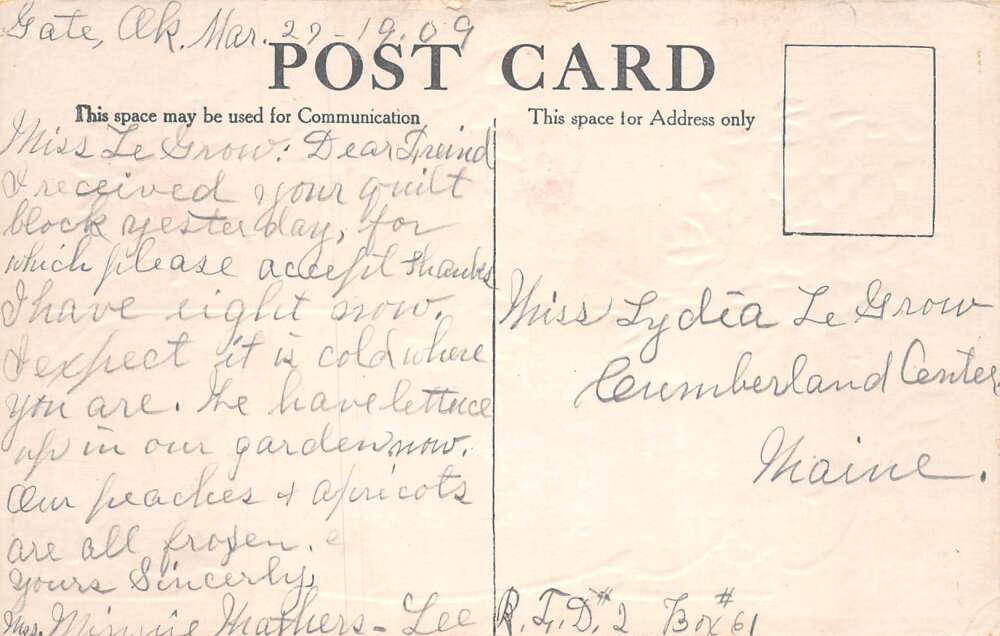 Gate, Ok. Mar. 27-19.09
POST CARD
This space may be used for Communication
This space for Address only
Miss Le Grow: Dear Freind
I received your quilt
block yesterday, for
which please accept thanks
I have eight now.
I expect it is cold where
you are. We have lettuce
up in our garden now.
Our peaches & apricots
are all frozen.
Yours Sincerly,
Mrs. Minnie Mathers-Lee
Miss Lydia Le Grow
Cumberland Center
Maine.
R.F.D.#2 Box #61